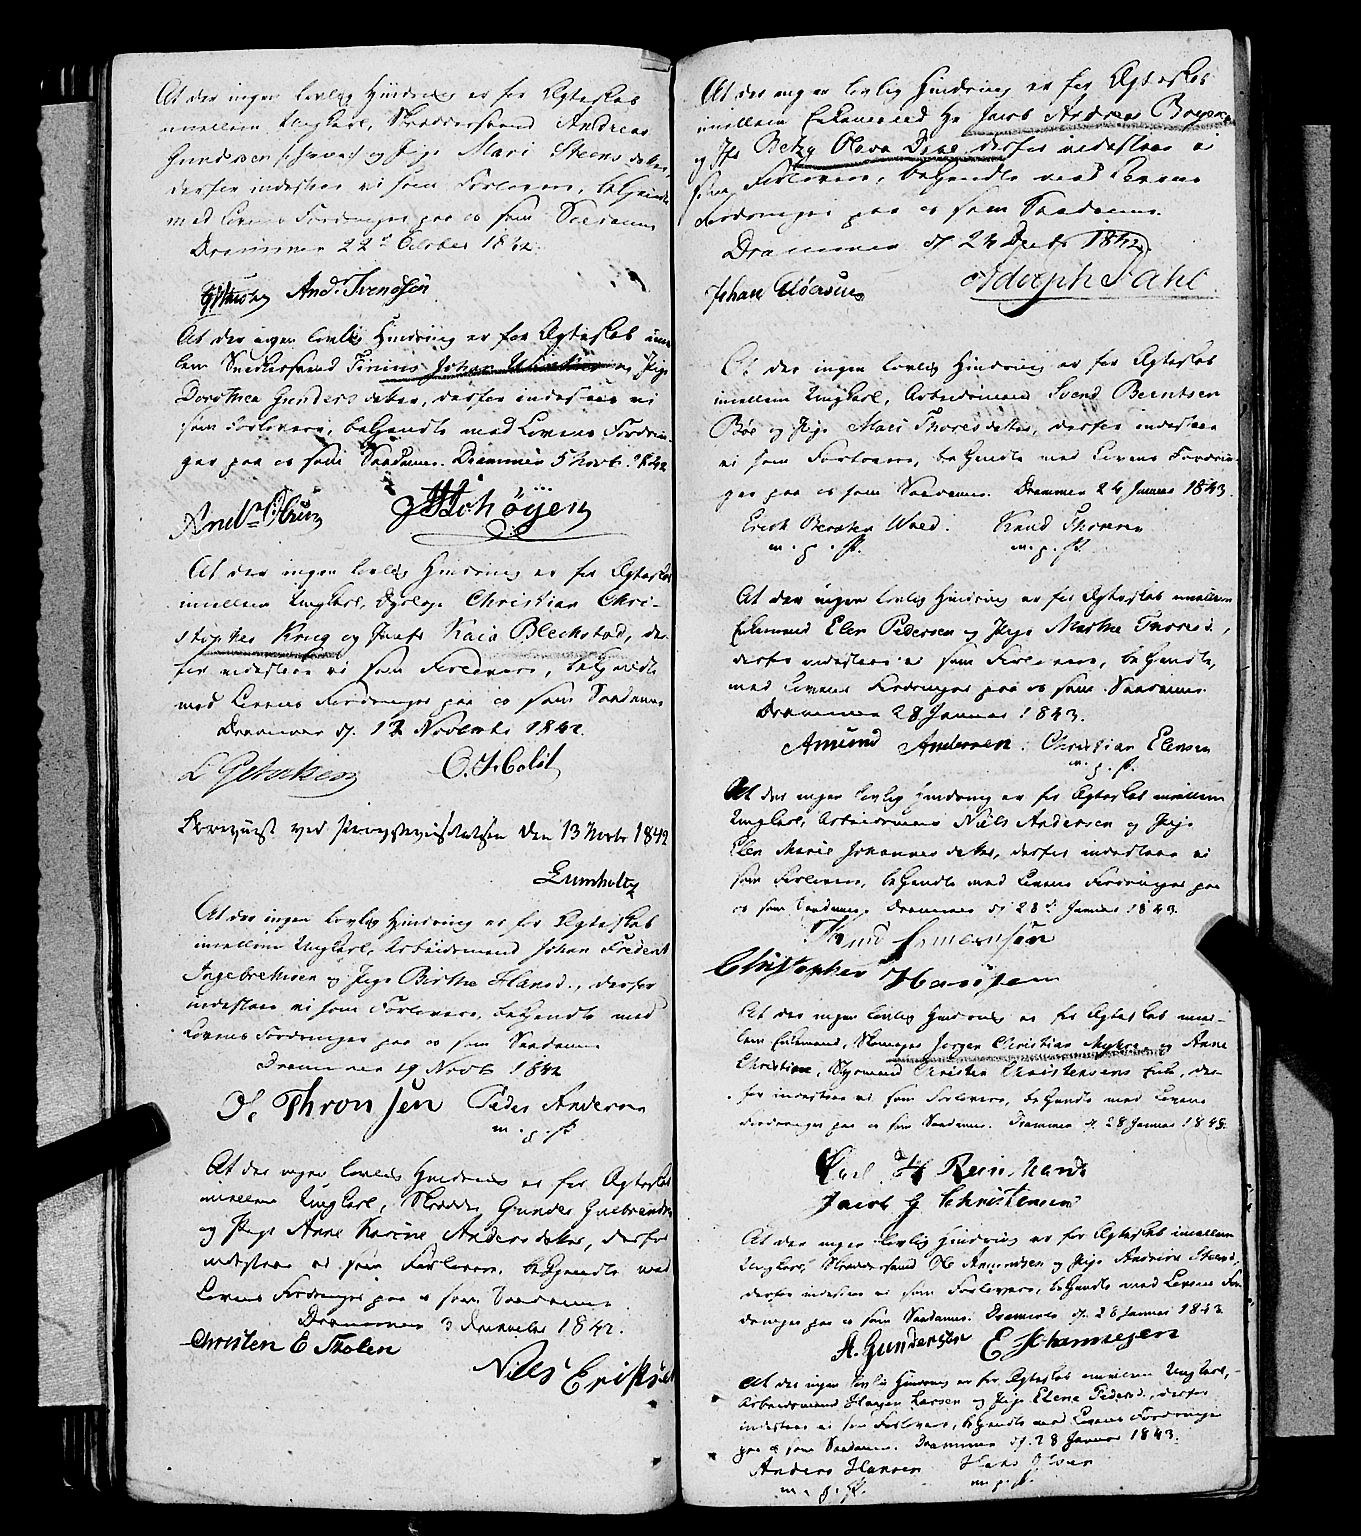 At der ingen lovlig Hindring er for Ægteskab
imellem Ungkarl, Skræddersvend Andreas
Gundersen og Pige Mari Steens datter,
derfor indestaae vi som Forlovere, bekjendte
med Lovens Fordringer paa os som Saadanne
Drammen 22de October 1842.
And. Svendsen
At der ingen lovlig Hindring er for Ægteskab imel
lem Snedkersvend Tinius Johan og Pige
Dorothea Gunders datter, derfor indestaae vi
som Forlovere, bekjendte med Lovens Fordrin
ger paa os som Saadanne. Drammen 5 Novbr. 1842
And. Olsen Schøyen
At der ingen lovlig Hindring er for Ægteskab
imellem Ungkarl, Christian Chri-
stopher Krug og Jomfr Kaia Bleckstad, der
for indestaae vi som Forlovere, bekjendte
med Lovens Fordringer paa os som Saadanne
Drammen d. 12 Novembr 1842.
L Petersen
ved den 13 Novbr 1842
Lumholtz
At der ingen lovlig Hindring er for Ægteskab
imellem Ungkarl, Arbeidsmand Johan Frederik
Ingebrethsen og Pige Birthe Hansd., derfor
indestaae vi som Forlovere, bekjendte med
Lovens Fordringer paa os som Saadanne
Drammen 19 Novb 1842
H. Thronsen Peder Andersen
m. p. P.
At der ingen lovlig Hindring er for Ægteskab
imellem Ungkarl, Skrædder Gunder Gulbrandsen
og Pige Anne Karine Anders datter, derfor
indestaae vi som Forlovere, bekjendte med
Lovens Fordringer paa os som Saadanne.
Drammen 3 December 1842.
Christen E Skolen
Niels Eriksen
At der ingen lovlig Hindring er for Ægteskab
imellem Enkemand Hr Jacob Andreas Boyesen
og Jfr Betzy Olava Dase derfor indestaae vi
som Forlovere, bekjendte med Lovens
Fordringer paa os som Saadanne.
Drammen d. 24 Decbr 1842.
Johan Adolph Dahl
At der ingen lovlig Hindring er for Ægteskab
imellem Ungkarl, Arbeidsmand Svend Berntsen
Bøe og Pige Mari Thores datter, derfor indestaae
vi som Forlovere, bekjendte med Lovens Fordrin-
ger paa os som Saadanne. Drammen 24 Januar 1843.
Erick Berntsen Knud Thoresen
m. p. P. m. p. P.
At der ingen lovlig Hindring er for Ægteskab imellem
Enkemand Elen Pedersen og Pige Marthe Thoresd.,
derfor indestaae vi som Forlovere, bekjendte,
med Lovens Fordringer paa os som Saadanne.
Drammen 28 Januar 1843.
Amund Andersen. Christian Elensen
m. p. P.
At der ingen lovlig Hindring er for Ægteskab imellem
Ungkarl, Arbeidsmand Niels Andersen og Pige
Elen Marie Johannes datter, derfor indestaae vi
som Forlovere, bekjendte med Lovens Fordringer paa
os som Saadanne. Drammen d. 28de Januar 1843.
Christopher Hansen
At der ingen lovlig Hindring er for Ægteskab imel-
lem Enkemand, Skomager Jørgen Christian Myhre og Anne
Christine, Styrmand Christen Christensens Enke, der-
for indestaae vi som Forlovere, bekjendte med Lovens
Fordringer paa os som Saadanne. Drammen d. 28 Januar 1843.
Carl H Reinhardt
Jacob G Christensen
At der ingen lovlig Hindring er for Ægteskab imellem
Ungkarl, Skræddersvend Ole Amundsen og Pige Andrine Steensd.,
derfor indestaae vi som Forlovere, bekjendte med Lovens For
dringer paa os som Saadanne. Drammen d. 28 Januar 1843
A. Gundersen E Johannesen
At der ingen lovlig Hindring er for Ægteskab imellem Ungkarl,
Arbeidsmand Hagen Larsen og Pige Elene Pedersd., derfor
indestaae vi som Forlovere, bekjendte med Lovens Fordringer
paa os som Saadanne. Drammen d. 28 Januar 1843.
Anders Hansen Hans Olsen
m. p. P. m. p. P.